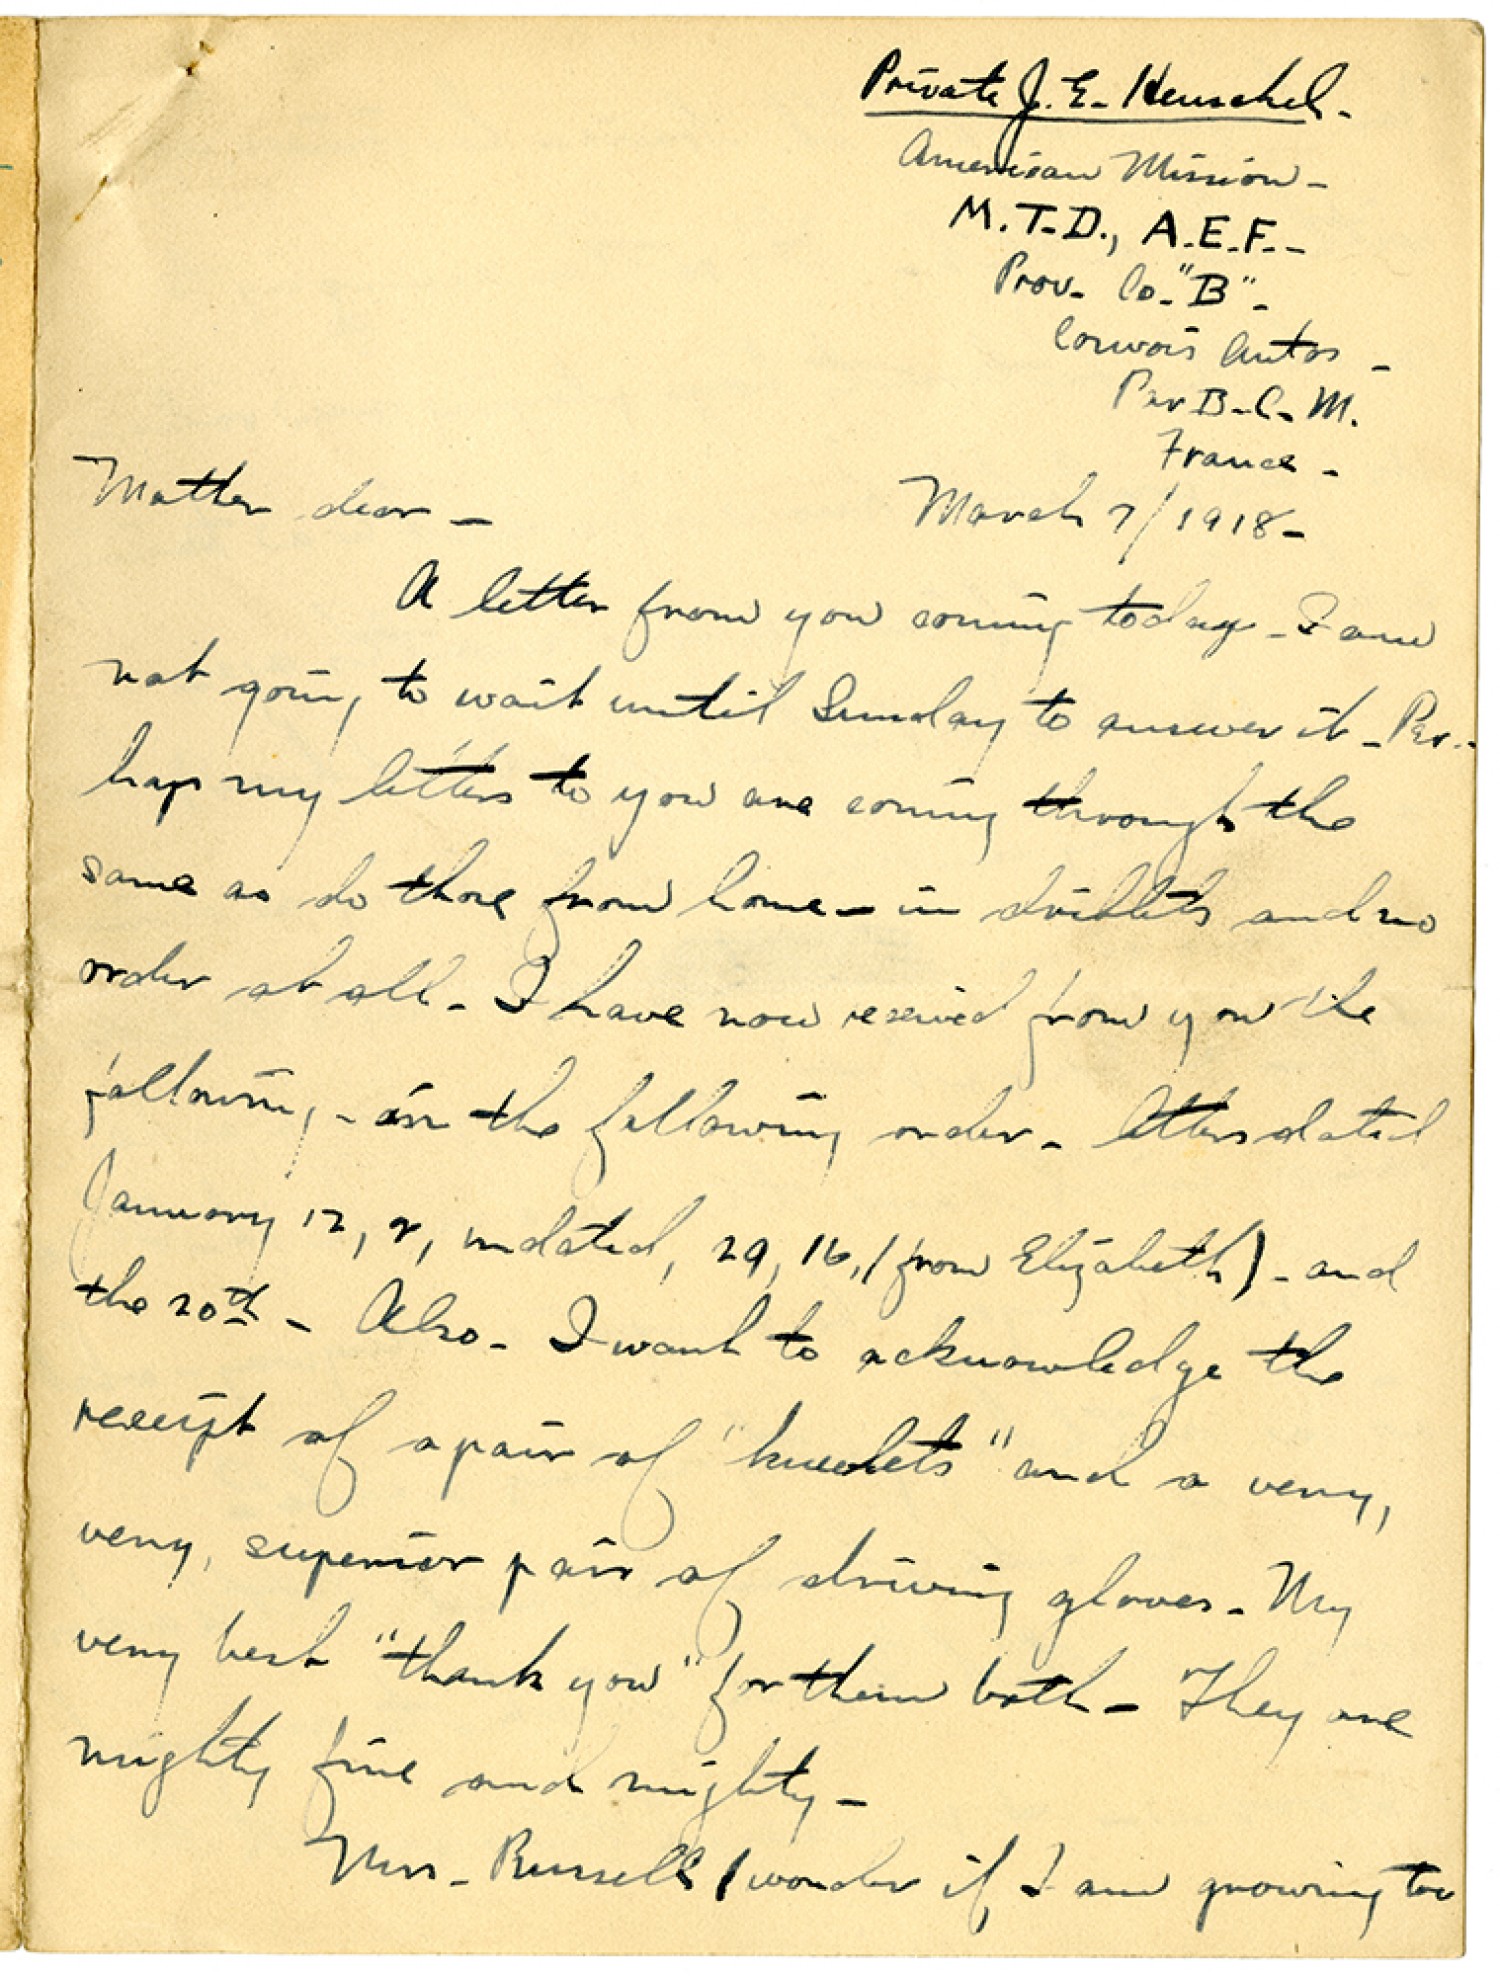 Private J. E. Henschel.
American Mission -
M.T.D., A.E.F. -
Prov. Co. "B" -
Convois Autos -
Par B. C. M.
France -
Mother dear -
March 7/1918 -
A letter from you coming today - I am
not going to wait until Sunday to answer it - Per-
haps my letters to you are coming through the
same as do those from home - in driblets and no
order at all - I have now received from you the
following - in the following order - letters dated
January 12, 2, undated, 29, 16, (from Elizabeth) - and
the 20th - Also - I want to acknowledge the
receipt of a pair of "kneelets" and a very,
very, superior pair of driving gloves - My
very best "thank you" for them both - They are
mighty fine and mighty -
Mrs. Russell (wonder if I am growing too